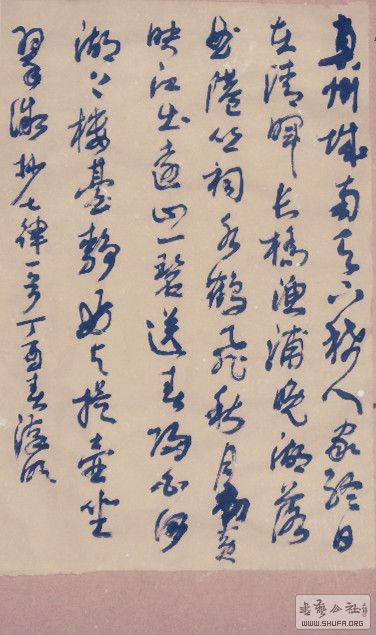 真州城南天下稀人家終日
在清暉長橋漁浦晚潮落
曲港丛祠水鶴飛秋月
映江出遠山一碧送春歸
湖上樓臺靜好與提壺坐
翠微抄七律一首丁酉春
书艺公社
WWW.SHUFA.ORG